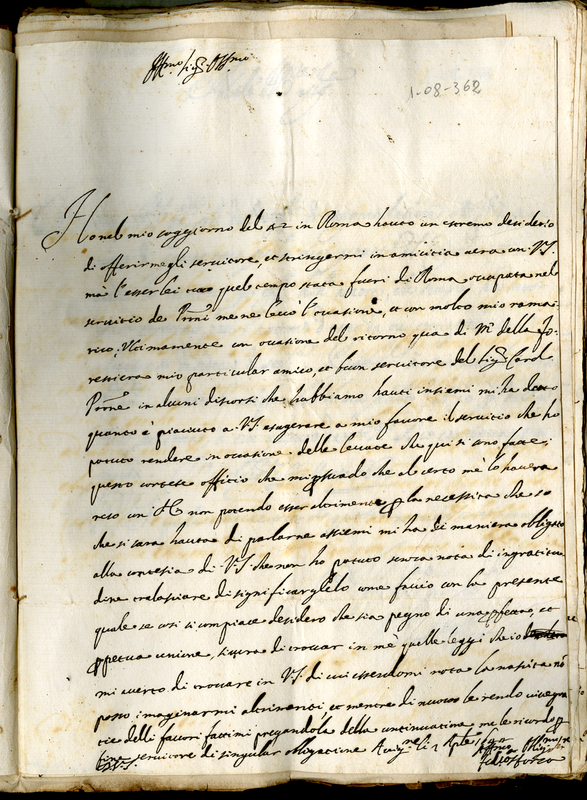 Ill.mo Sig.r Oss.mo
1-08-362
Ho nel mio soggiorno del 42 in Roma hauto un estremo desiderio
di offerirmegli servitore, et stringermi in amicitia vera con V.S.
mà l'esser lei in quel tempo stata fuori di Roma occupata nel
servitio de Pnni me ne levò l'occasione, et con molto mio ramari
rico; Ultimamente con occasione del ritorno qua di Mr della Fo-
restiera mio particular amico, et buon servitore del Sig.r Card.
Pnne in alcuni discorsi che habbiamo hauti insiemi mi ha detto
quanto è piaciuto a V.S. esagerare a mio favore il servitio che ho
potuto rendere in occasione delle levate che qui si sono fatte;
questo cortese offitio che mi persuado che di certo me lo havera
reso un non potendo esser altrimente per la necessità che so
che si sara hauta di parlarne assiemi mi ha di maniera obligato
alla cortesia di V.S. che non ho potuto senza nota di ingratitu
dine tralasciare di significarglielo come faccio con la presente
quale se così si compiace desidero che sia pegno di una perfetta, et
perpetua unione, sicura di trovar in mè quelle leggi che io
mi accerto di trovare in V.S. di cui essendomi nota la nascita nō
posso imaginarmi altrimenti et mentre di nuovo le rendo vive gra
tie delli favori fattimi pregandola della continuatione me le ricordo per
fine servitore di singular obligatione Avig.ne li 2 Aple
di V.S.